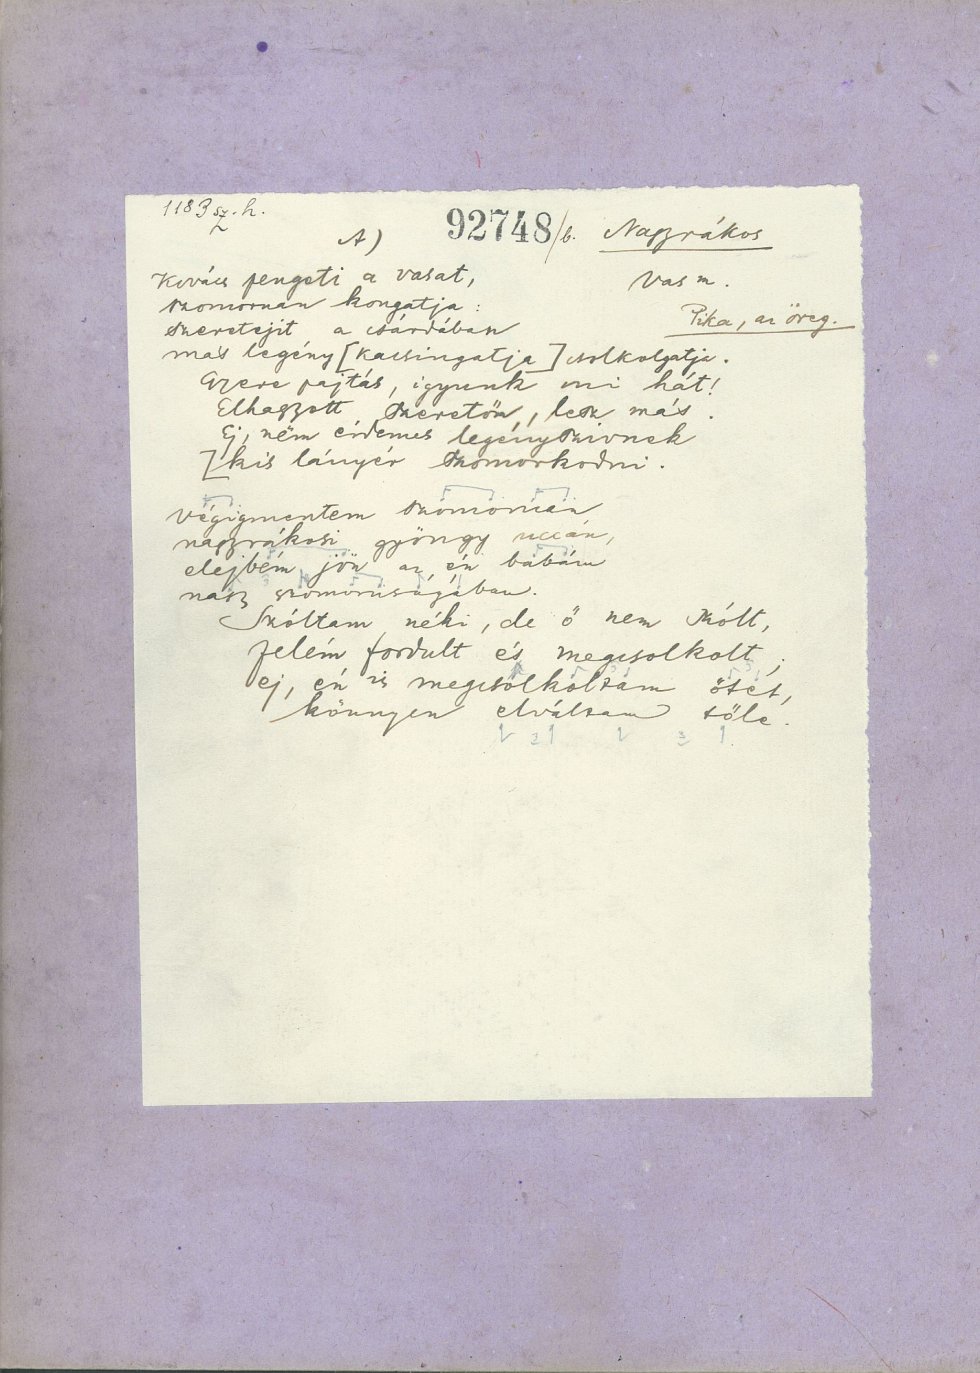 1183 sz. h.
92748/b. Nagyrákos
A)
Vas m.
Kovács pengeti a vasat,
szomorúan kongatja:
Pika, az öreg.
Szeretejit a csárdában
más legény [kacsingatja] csolkolgatja.
Gyere pajtás, igyunk mi hát!
Elhagyott szeretőm, lesz más.
Ej, nëm érdemes legényszivnek
] kis lányér szomorkodni.
Végigmentem szomorúan
nagyrákosi gyöngy uccán,
elejbém jön az én babám
nagy szomorúságában.
Szóltam néki, de ő nem szólt,
felém fordult és megcsolkolt,
ej, én is megcsolkoltam őtet,
könnyen elváltam tőle.